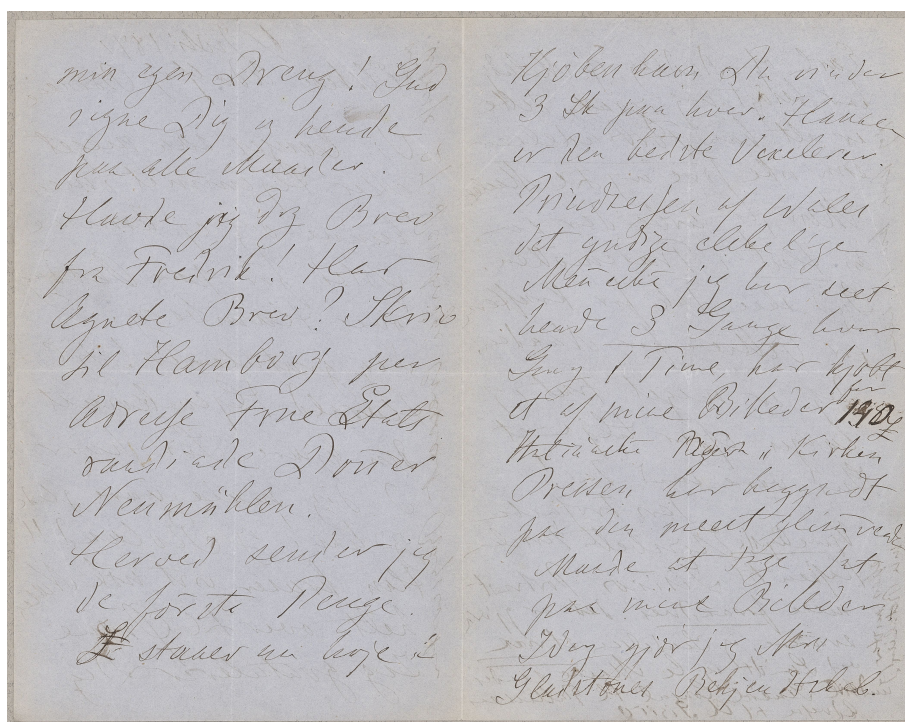 min egen Dreng! Gud
signe Dig og hende
paa alle Maader.
Havde jeg dog Brev
fra Fredrik! Har
Agnete Brev? Skriv
til Hamborg per
Adresse Frue Etats
raadinde Donner
Neumühlen.
Herved sender jeg
de förste Penge.
£ staaer nu høje i
Kjöbenhavn Du vinder
3 Sk paa hver. Hansen
er den bedste Vexelerer.
Prindsessen af Wales
det yndige elskelige
Menneske jeg har seet
hende 3 Gange hver
Gang 1 Time, har kjöbt
et af mine Billeder for
140 £
i Kirken
Pressen har begyndt
paa den meest glimrende
Maade at tage fat
paa mine Billeder
Idag gjør jeg Mrs
Gladstones Bekjendtskab.